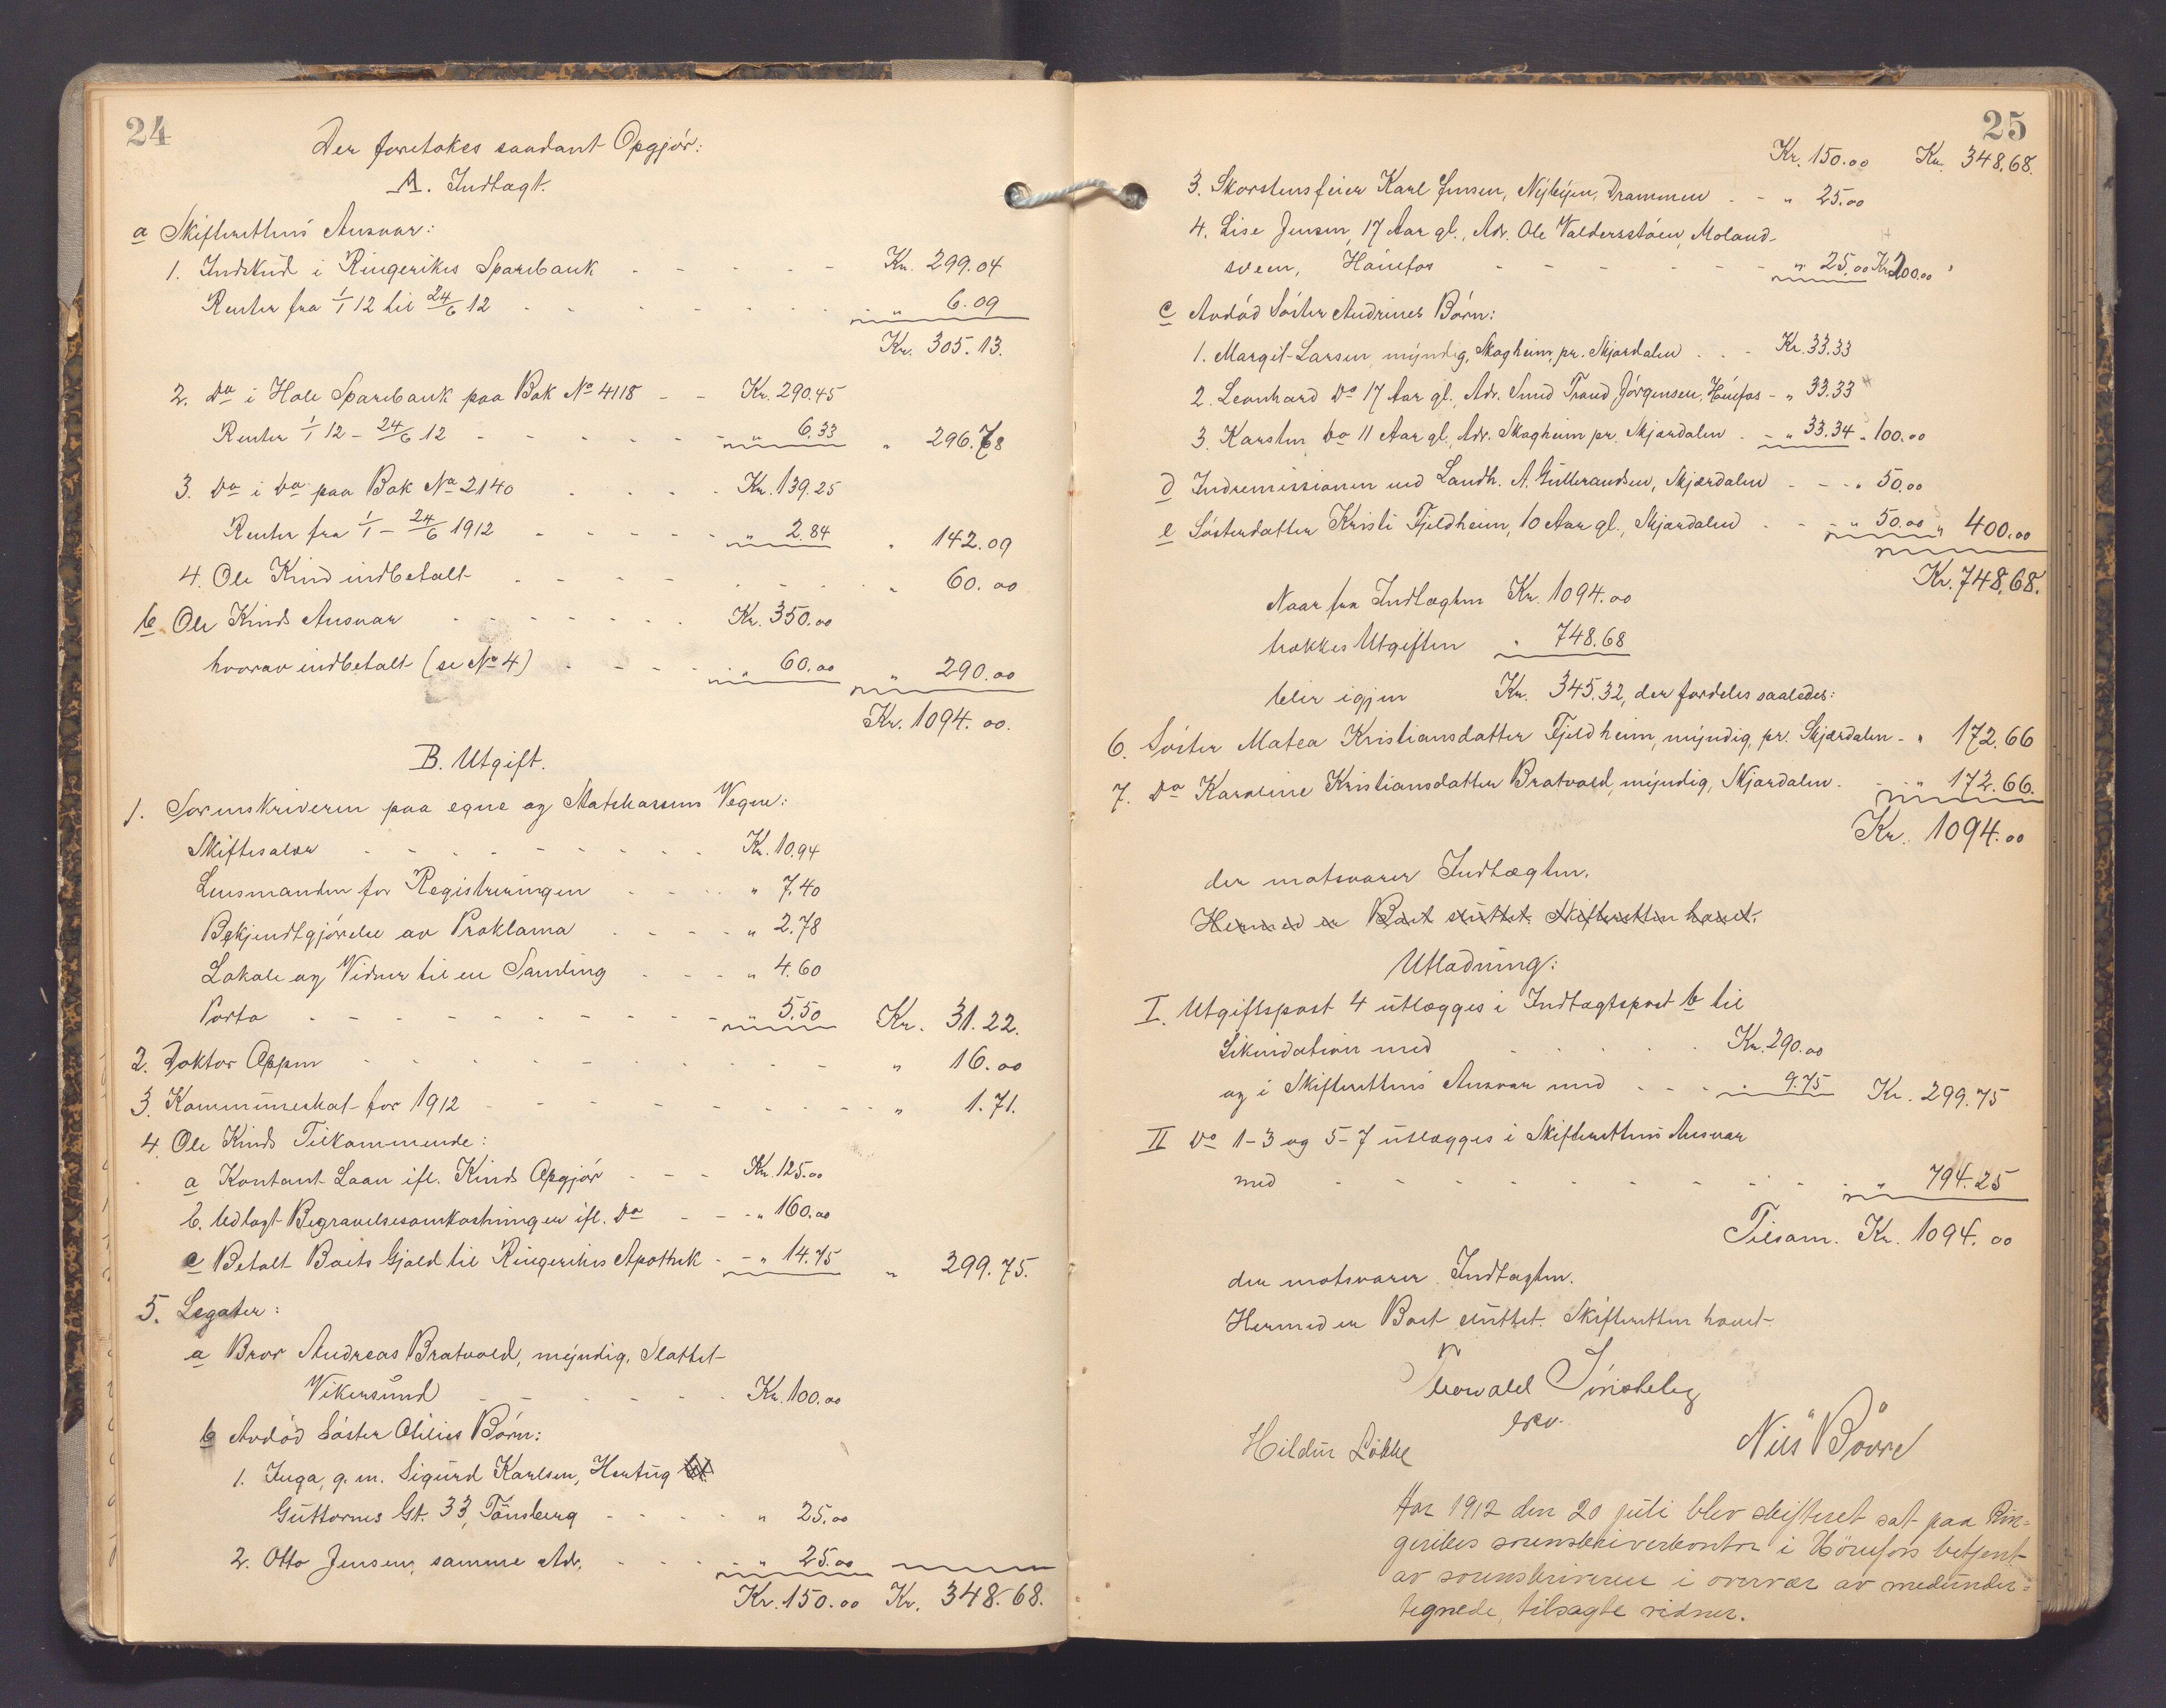 24
Der foretokes saadant Opgjör:
A. Indtægt.
a Skifterettens Ansvar:
1. Indskud i Ringerikes Sparebank - - - - - Kr. 299.04
Renter fra 1/1 12 til 24/6 12 - - - - - - - " 6.09
Kr. 305.13.
2. Do i Hole Sparebank paa Bok No 4118 - - Kr. 290.45
Renter 1/1 12 - 24/6 12 - - - - - - " 6.33 " 296.78
3. Do i Do paa Bok No 2140 - - - - Kr. 139.25
Renter fra 1/1 - 24/6 1912 - - - - - " 2.84 " 142.09
4. Ole Kind indbetalt - - - - - - - - " 60.00
b Ole Kinds Ansvar - - - - - - - Kr. 350.00
hvorav indbetalt (se No 4) - - - - " 60.00 " 290.00
Kr. 1094.00.
B. Utgift.
1. Sorenskriveren paa egne og Statskassens Vegne:
Skiftesalær - - - - - - - - - Kr. 10.94
Lensmanden for Registreringen - - - - " 7.40
Bekjendtgjörelse av Proklama - - - - " 2.78
Lokale og Vidner til en Samling - - - - " 4.60
Porto - - - - - - - - - " 5.50 Kr. 31.22.
2. Doktor Appen - - - - - - - - - " 16.00
3. Kommuneskat for 1912 - - - - - - - - - " 1.71.
4. Ole Kinds Tilkommende:
a Kontant Laan ifl. Kinds Opgjör - - - Kr. 125.00
b. Utlagt Begravelsesomkostninger ifl. Do - - - " 160.00
c Betalt Boets Gjæld til Ringerikes Apothek - - " 14.75 " 299.75.
5. Legater:
a Bror Andreas Bratvold, myndig, Slattet
Vikersund - - - - - - Kr. 100.00
b Avdöd Söster Otilies Börn:
1. Inga, g. m. Sigurd Karlsen, Hertug
Guttorms Gt. 33, Tönsberg - - - - " 25.00
2. Otto Jensen, samme Adr. - - - - " 25.00
Kr. 150.00 Kr. 348.68.
25
Kr. 150.00 Kr. 348.68.
3. Skorstensfeier Karl Jensen, Nybyen, Drammen - - " 25.00
4. Lise Jensen, 17 Aar gl., Adr. Ole Valdersstöen, Moland-
sveen, Hönefos - - - - - - " 25.00 Kr. 200.00
c Avdöd Söster Andrines Börn:
1. Margit Larsen, myndig, Skogheim, pr. Skjærdalen - - - Kr. 33.33
2. Leonhard Do 17 Aar gl., Adr. Smed Trond Jörgensen, Hönefos - " 33.33
3. Karsten Do 11 Aar gl., Adr. Skogheim pr. Skjærdalen - - " 33.34 " 100.00
d Indremissionen ved Landh. A. Gulbrandsen, Skjærdalen - - - " 50.00
e Sösterdatter Kristi Fjeldheim, 10 Aar gl., Skjærdalen - - - " 50.00 " 400.00
Kr. 748.68.
Naar fra Indtægten Kr. 1094.00
trækkes Utgiften " 748.68
blir igjen Kr. 345.32, der fordeles saaledes:
6. Söster Matea Kristiansdatter Fjeldheim, myndig, pr. Skjærdalen - " 172.66
7. Do Karoline Kristiansdatter Bratvold, myndig, Skjærdalen. - " 172.66.
Kr. 1094.00
der motsvarer Indtægten.
Hermed er Boet sluttet. Skifteretten hævet.
Utlodning:
I. Utgiftspost 4 utlægges i Indtægtspost b til
Likvidation med - - - - - Kr. 290.00
og i Skifterettens Ansvar med - - - " 9.75 Kr. 299.75
II Do 1-3 og 5-7 utlægges i Skifterettens Ansvar
med - - - - - - - - - - " 794.25
Tilsam. Kr. 1094.00
der motsvarer Indtægten.
Hermed er Boet sluttet. Skifteretten hævet.
Hildur Lökke
Nils Bovre
Aar 1912 den 20 juli blev skifteret sat paa Rin-
gerikes sorenskriverkontor i Hönefos betjent
av sorenskriveren i overvær av medunder-
tegnede, tilsagte vidner.